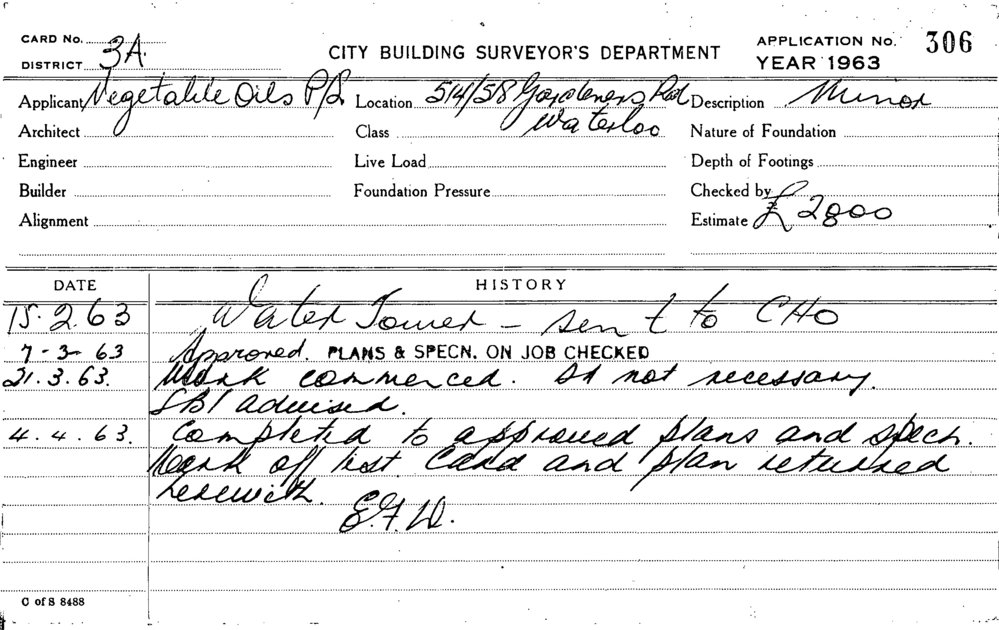 CARD No. 3A.
DISTRICT
CITY BUILDING SURVEYOR'S DEPARTMENT
APPLICATION No. 306
YEAR 1963
Applicant Vegetable Oils P/L Location 514/58 Gardeners Rd Description Minor
Waterloo
Architect Class Nature of Foundation
Engineer Live Load Depth of Footings
Builder Foundation Pressure Checked by
Alignment Estimate £ 2800
DATE HISTORY
15.2.63 Water Tower - sent to CHO
7-3-63 Approved. PLANS & SPECN. ON JOB CHECKED
21.3.63. Work commenced. not necessary.
advised.
4.4.63. Completed to approved plans and specn.
Mark off list Card and plan returned
herewith.
C of S 8488